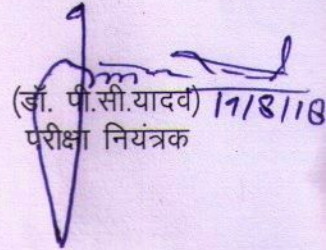 (डॉ. पी.सी.यादव) 17/8/18
परीक्षा नियंत्रक